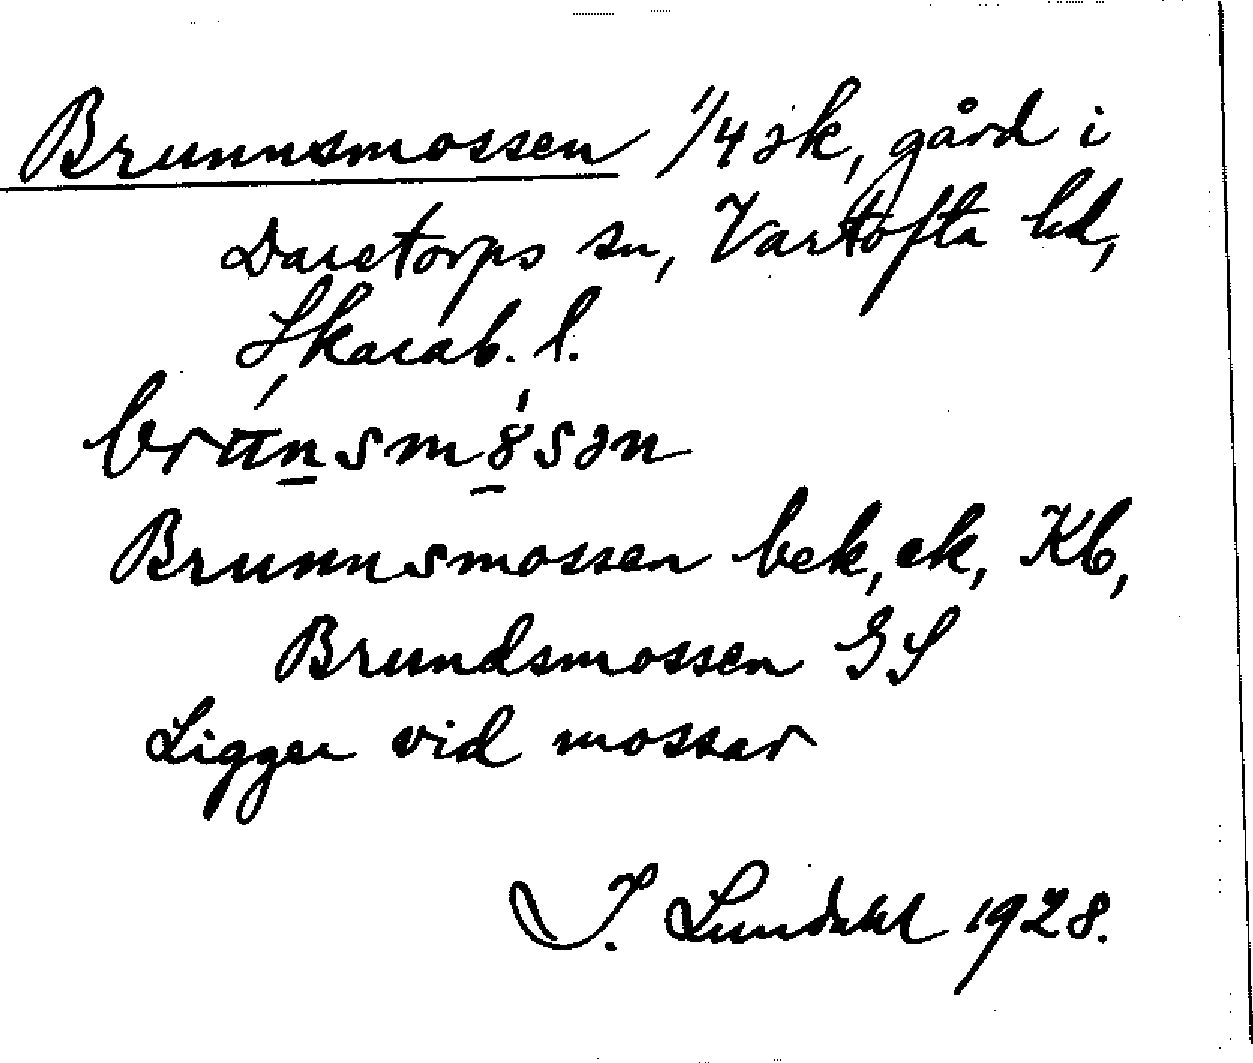 Brunnsmossen 1/4 sk, gård i
Daretorps sn, Vartofta hd,
Skarab. l.
Brunnsmossen bek, ek, Kb,
Brundsmossen GS
Ligger vid mossar
I. Lundahl 1928.